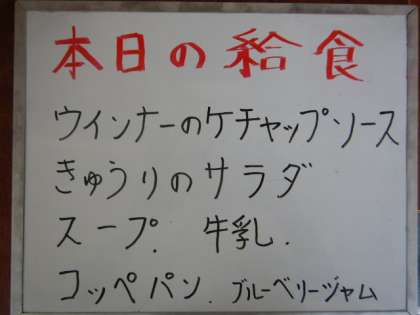 本日の給食
ウインナーのケチャップソース
きゅうりのサラダ
スープ. 牛乳.
コッペパン. ブルーベリージャム